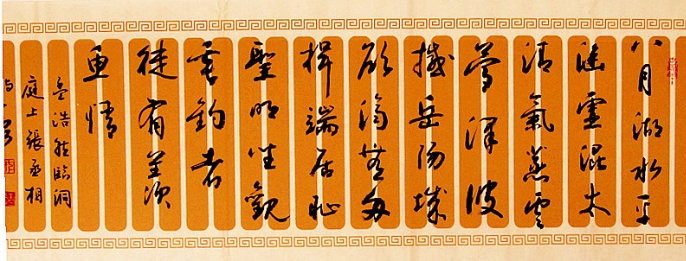 八月湖水平
涵虛混太
清氣蒸雲
夢澤波
撼岳陽城
欲濟無舟
楫端居恥
聖明坐觀
垂釣者
徒有羨
魚情
孟浩然臨洞
庭上張丞相